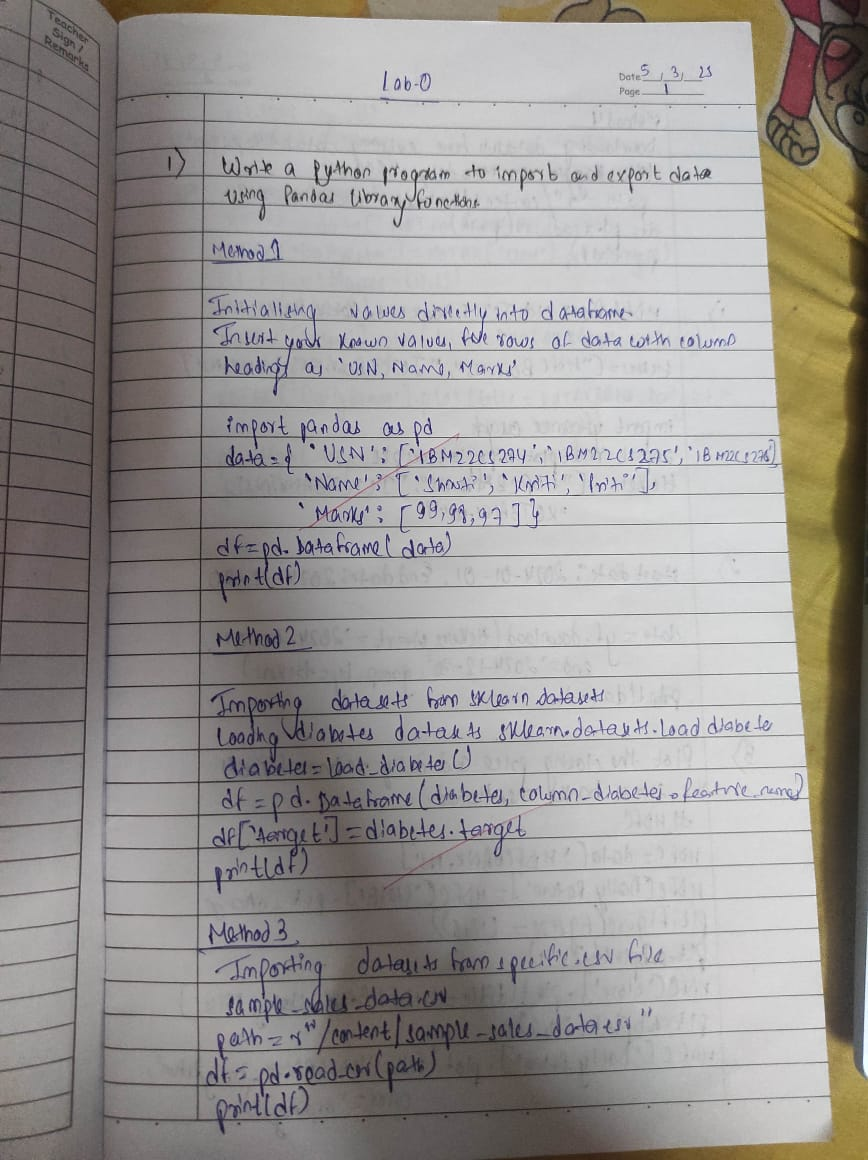 Teacher
Sign /
Remarks
Lab-0
Date 5, 3, 25
Page 1
1) Write a python program to import and export data
using Pandas library functions
Method 1
Initialising values directly into dataframe
Insert your known values, five rows of data with column
headings as 'USN, Name, Marks'
import pandas as pd
data = { 'USN': ['1BM22CS274', '1BM22CS275', '1BM22CS276']
'Name': ['Shruti', 'Kriti', 'Priti'],
'Marks': [99,98,97] }
df=pd.Dataframe(data)
print(df)
Method 2
Importing datasets from sklearn datasets
Loading diabetes datasets sklearn.datasets.load diabete
diabetes=load_diabetes()
df = pd.Dataframe(diabetes, column_diabetes.feature_names)
df['target']=diabetes.target
print(df)
Method 3
Importing datasets from specific.csv file
sample_sales_data.csv
path = r"/content/sample_sales_data.csv"
df = pd.read_csv(path)
print(df)